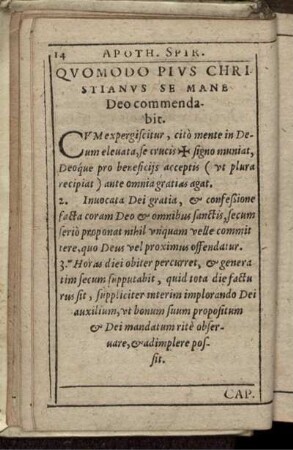 14 APOTH. SPIR.
QVOMODO PIVS CHRI
STIANVS SE MANE
Deo commenda-
bit.
CVM expergiscitur, citò mente in De-
um eleuata, se crucis ✠ signo muniat,
Deoque pro beneficijs acceptis ( vt plura
recipiat ) ante omnia gratias agat.
2. Inuocata Dei gratia, & confessione
facta coram Deo & omnibus sanctis, secum
seriò proponat nihil vnquam velle commit
tere, quo Deus vel proximus offendatur.
3. Horas diei obiter percurret, & genera
tim secum supputabit, quid tota die factu
rus sit, suppliciter interim implorando Dei
auxilium, vt bonum suum propositum
& Dei mandatum ritè obser-
uare, & adimplere pos-
sit.
CAP.